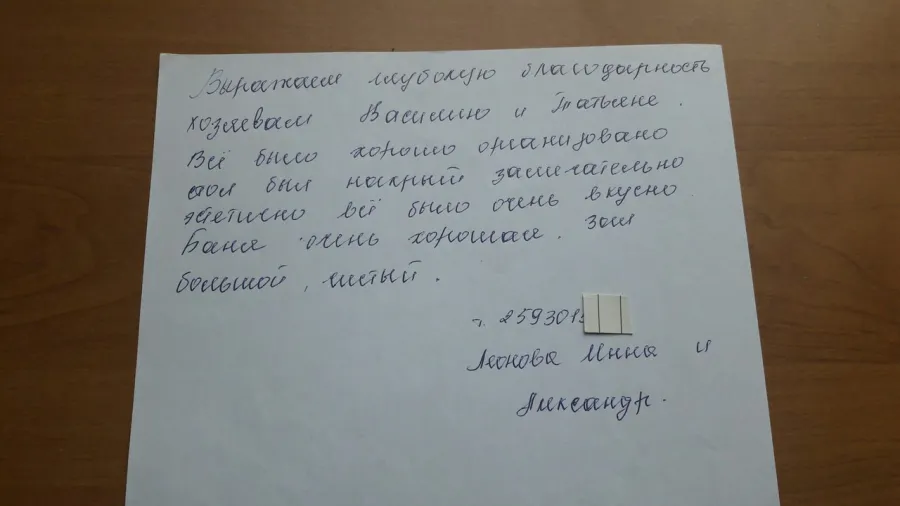 Выражаем глубокую благодарность
хозяевам Василию и Татьяне.
Всё было хорошо организовано
стол был накрый замечательно
эстетично всё было очень вкусно
Баня очень хорошая. зал
большой, чистый.
т. 2593019
Леонова Инна и
Александр.